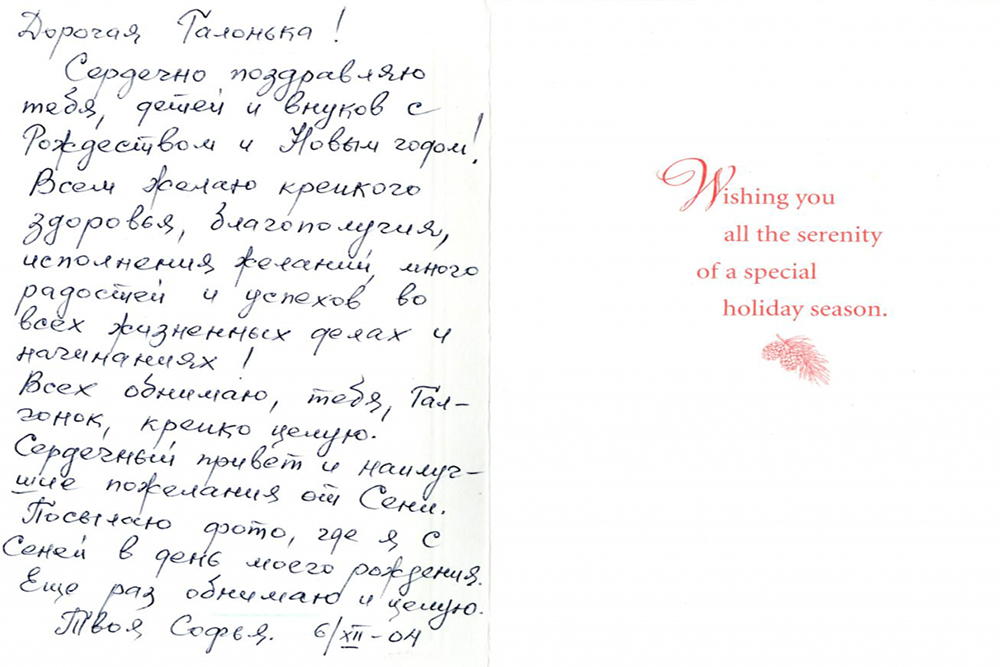 Дорогая Галонька!
Сердечно поздравляю
тебя, детей и внуков с
Рождеством и Новым годом!
Всем желаю крепкого
здоровья, благополучия,
исполнения желаний, много
радостей и успехов во
всех жизненных делах и
начинаниях!
Всех обнимаю, тебя, Гал-
чонок, крепко целую.
Сердечный привет и наилуч-
шие пожелания от Сени.
Посылаю фото, где я с
Сеней в день моего рождения.
Еще раз обнимаю и целую.
Твоя Софья. 6/XII-04
Wishing you
all the serenity
of a special
holiday season.